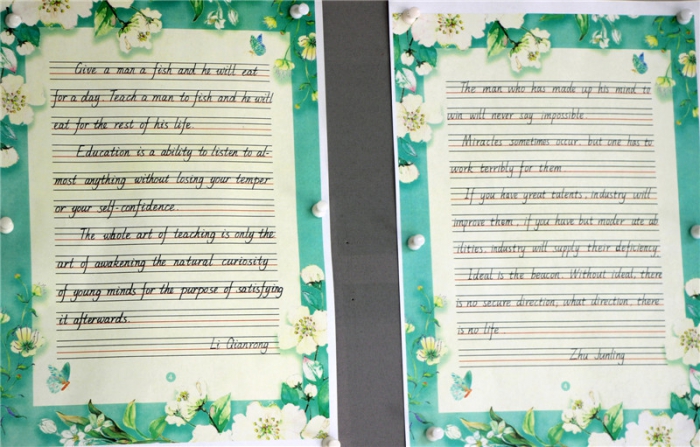 Give a man a fish and he will eat
for a day. Teach a man to fish and he will
eat for the rest of his life.
Education is a ability to listen to al-
most anything without losing your temper
or your self-confidence.
The whole art of teaching is only the
art of awakening the natural curiosity
of young minds for the purpose of satisfying
it afterwards.
Li Qianrong
4
The man who has made up his mind to
win will never say impossible.
Miracles sometimes occur, but one has to
work terribly for them.
If you have great talents, industry will
improve them; if you have but moder ate ab
ilities, industry will supply their deficiency.
Ideal is the beacon. Without ideal, there
is no secure direction; what direction, there
is no life.
Zhu Junling